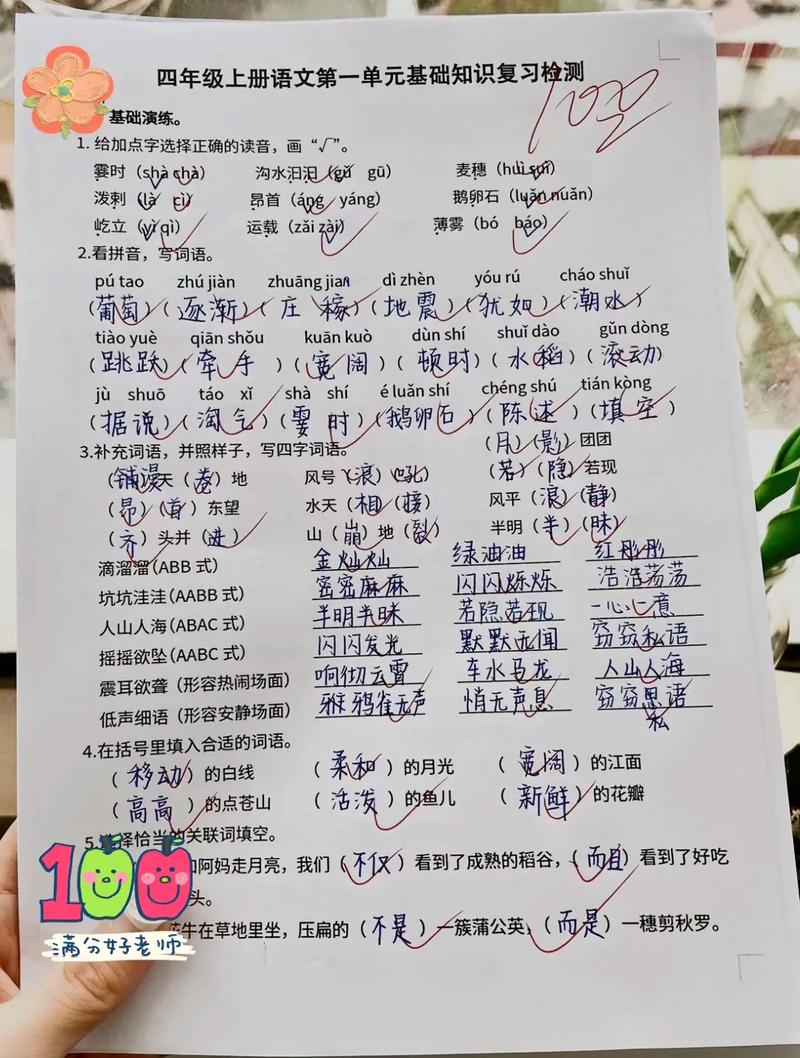 四年级上册语文第一单元基础知识复习检测
100
基础演练。
1. 给加点字选择正确的读音，画“√”。
霎时（shà chà） 沟水汩汩（gǔ gū） 麦穗（huì suì）
泼剌（là cì） 昂首（áng yáng） 鹅卵石（luǎn nuǎn）
屹立（yì qì） 运载（zǎi zài） 薄雾（bó báo）
2.看拼音，写词语。
pú tao zhú jiàn zhuāng jian dì zhèn yóu rú cháo shuǐ
（葡萄）（逐渐）（庄稼）（地震）（犹如）（潮水）
tiào yuè qiān shǒu kuān kuò dùn shí shuǐ dào gǔn dòng
（跳跃）（牵手）（宽阔）（顿时）（水稻）（滚动）
jù shuō táo xǐ shà shí é luǎn shí chéng shú tián kòng
（据说）（淘气）（霎时）（鹅卵石）（陈述）（填空）
3.补充词语，并照样子，写四字词语。 （月）（影）团团
（铺漫）天（卷）地 风号（浪）（吼） （若）（隐）若现
（昂）（首）东望 水天（相）（接） 风平（浪）（静）
（齐）头并（进） 山（崩）地（裂） 半明（半）（昧）
滴溜溜（ABB 式） 金灿灿 绿油油 红彤彤
坑坑洼洼（AABB 式） 密密麻麻 闪闪烁烁 浩浩荡荡
人山人海（ABAC 式） 半明半昧 若隐若现 一心一意
摇摇欲坠（AABC 式） 闪闪发光 默默无闻 窃窃私语
震耳欲聋（形容热闹场面） 响彻云霄 车水马龙 人山人海
低声细语（形容安静场面） 鸦雀无声 悄无声息 窃窃思语
私
4.在括号里填入合适的词语。
（移动）的白线 （柔和）的月光 （宽阔）的江面
（高高）的点苍山 （活泼）的鱼儿 （新鲜）的花瓣
5.选择恰当的关联词填空。
和阿妈走月亮，我们（不仅）看到了成熟的稻谷，（而且）看到了好吃
头。
花牛在草地里坐，压扁的（不是）一簇蒲公英，（而是）一穗剪秋罗。
100
满分好老师